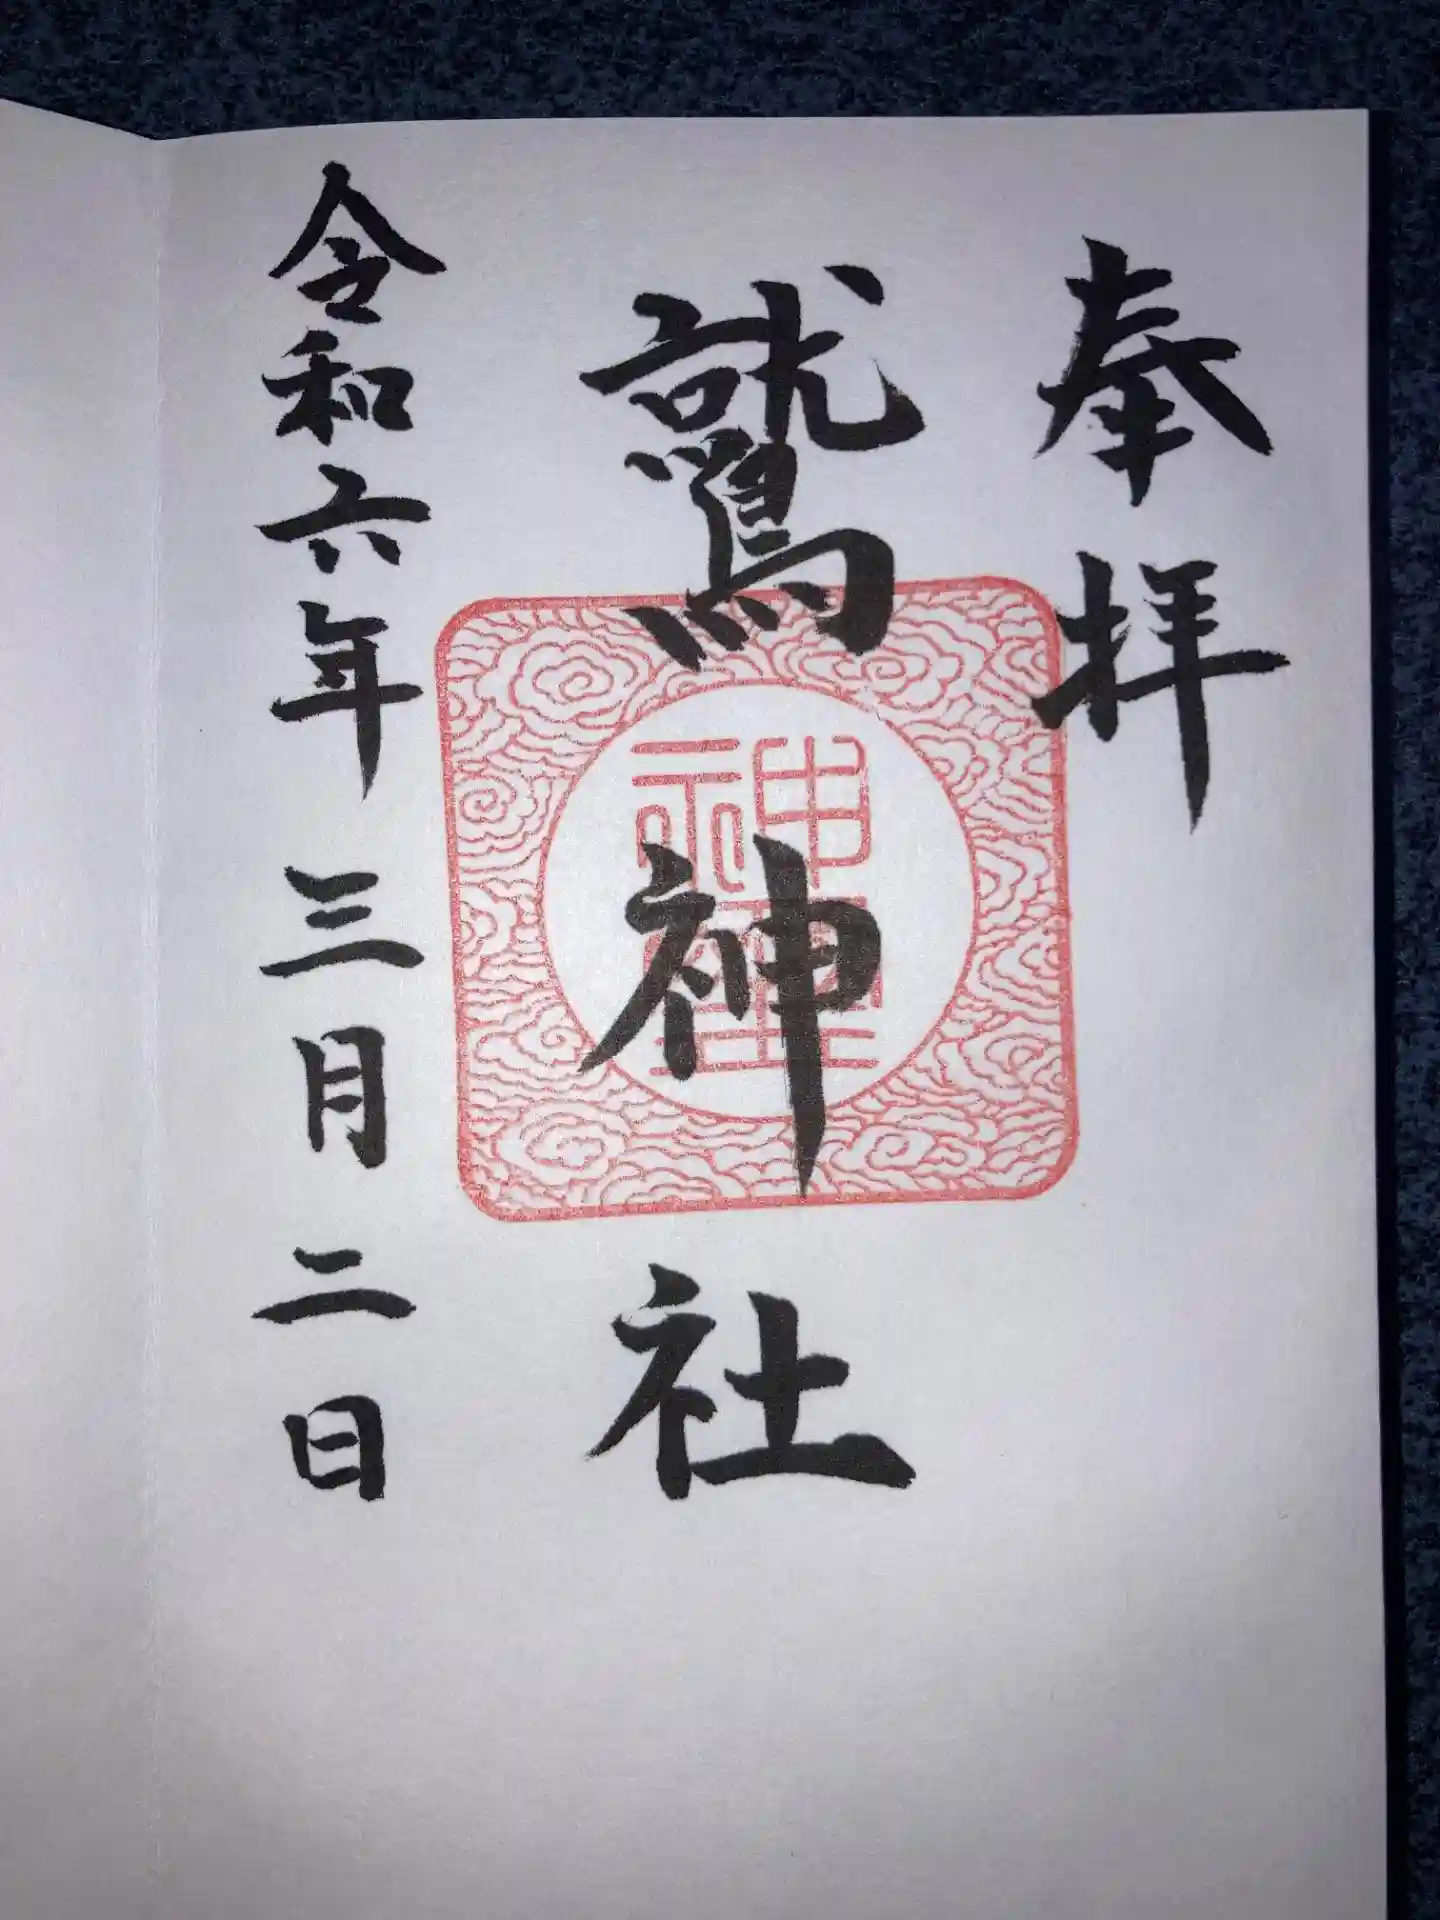 奉拝
鷲神社
令和六年三月二日
神璽